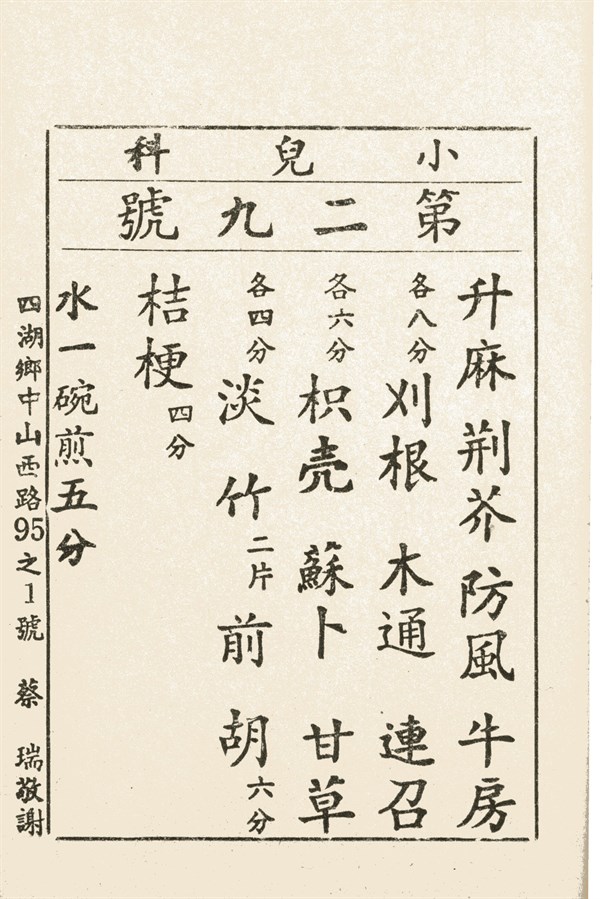 小兒科
第二九號
升麻 荆芥 防風 牛房
各八分 刈根 木通 連召
各六分 枳壳 蘇卜 甘草
各四分 淡竹二片 前胡六分
桔梗四分
水一碗煎五分
四湖鄉中山西路95之1號 蔡瑞敬謝